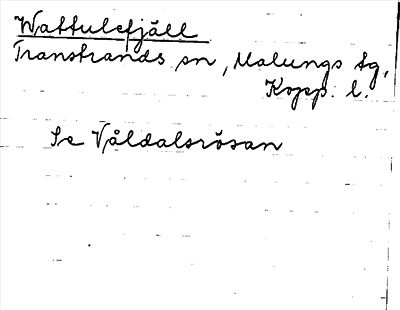 Wattulefjäll
Transtrands sn, Malungs tg,
Kopp. l.
Se Våldalsrösan